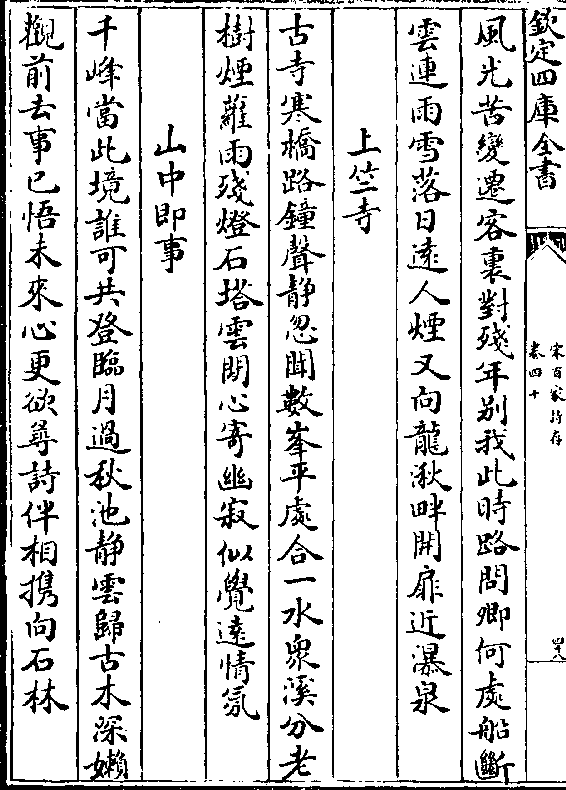 欽定四庫全書
宋百家詩存
卷四十
四八
風光苦變遷客裏對殘年别我此時路問卿何處船斷
雲連雨雪落日遠人煙又向龍湫畔開扉近瀑泉
上竺寺
古寺寒橋路鐘聲静忽聞數峯平處合一水衆溪分老
樹煙蘿雨殘燈石塔雲閒心寄幽寂似覺遠情氛
山中即事
千峰當此境誰可共登臨月過秋池静雲歸古木深嬾
觀前去事已悟未來心更欲尋詩伴相携向石林